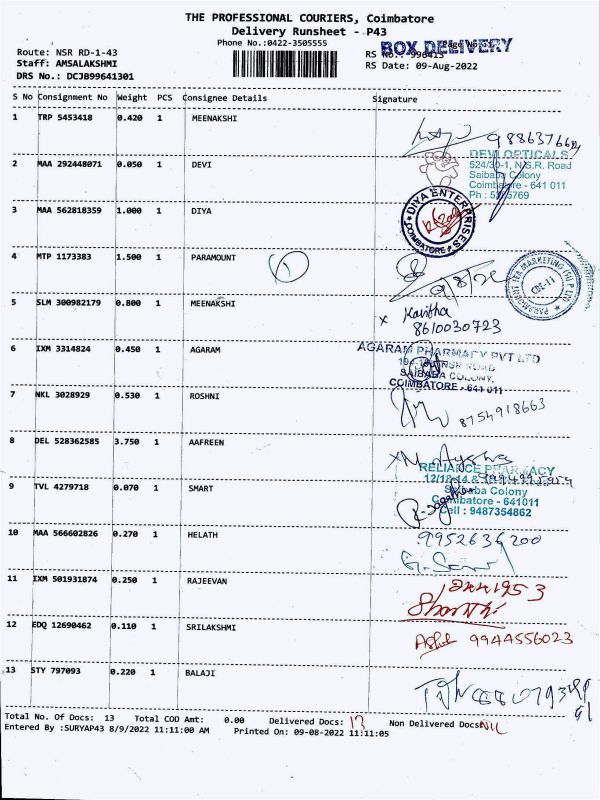 THE PROFESSIONAL COURIERS, Coimbatore
Delivery Runsheet - P43
Phone No.:0422-3505555
BOX DELIVERY
Route: NSR RD-1-43
RS No.: 996413
Staff: AMSALAKSHMI
RS Date: 09-Aug-2022
DRS No.: DCJB99641301
S No Consignment No Weight PCS Consignee Details Signature
1 TRP 5453418 0.420 1 MEENAKSHI
DEVI OPTICALS
524/30-1, N.S.R. Road
Saibaba Colony
Coimbatore - 641 011
2 MAA 292448071 0.050 1 DEVI
3 MAA 562818359 1.000 1 DIYA
DIYA ENTERPRISES
COIMBATORE
4 MTP 1173383 1.500 1 PARAMOUNT
1
CBE-11
5 SLM 300982179 0.800 1 MEENAKSHI
x Kavitha
8610030723
6 IXM 3314824 0.450 1 AGARAM
AGARAM PHARMACY PVT LTD
NSR ROAD
SAIBABA COLONY,
COIMBATORE - 641 011
7 NKL 3028929 0.530 1 ROSHNI
8754918663
8 DEL 528362585 3.750 1 AAFREEN
RELIANCE PHARMACY
Saibaba Colony
Coimbatore - 641011
Cell : 9487354862
9 TVL 4279718 0.070 1 SMART
10 MAA 566602826 0.270 1 HELATH
9952636200
11 IXM 501931874 0.250 1 RAJEEVAN
12 EDQ 12690462 0.110 1 SRILAKSHMI
9944556023
13 STY 797093 0.220 1 BALAJI
Total No. Of Docs: 13 Total COD Amt: 0.00 Delivered Docs: 13 Non Delivered Docs: NIL
Entered By :SURYAP43 8/9/2022 11:11:00 AM Printed On: 09-08-2022 11:11:05